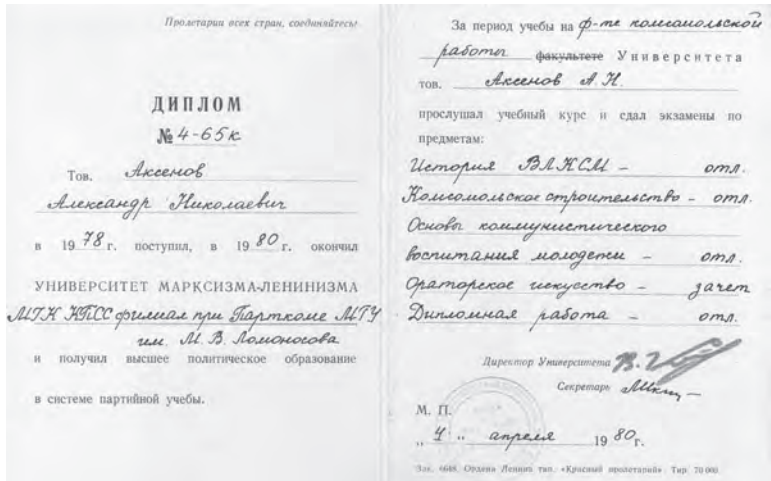 Пролетарии всех стран, соединяйтесь!
ДИПЛОМ
№ 4-65к
Тов. Аксенов
Александр Николаевич
в 1978 г. поступил, в 1980 г. окончил
УНИВЕРСИТЕТ МАРКСИЗМА-ЛЕНИНИЗМА
МГК КПСС филиал при Парткоме МГУ
им. М. В. Ломоносова
и получил высшее политическое образование
в системе партийной учебы.
За период учебы на ф-те комсомольской
работы факультете Университета
тов. Аксенов А. Н.
прослушал учебный курс и сдал экзамены по
предметам:
История ВЛКСМ – отл.
Комсомольское строительство – отл.
Основы коммунистического
воспитания молодежи – отл.
Ораторское искусство – зачет
Дипломная работа – отл.
Директор Университета
Секретарь
М. П.
„ 4 „ апреля 1980 г.
Зак. 6648. Ордена Ленина тип. «Красный пролетарий». Тир. 70 000.